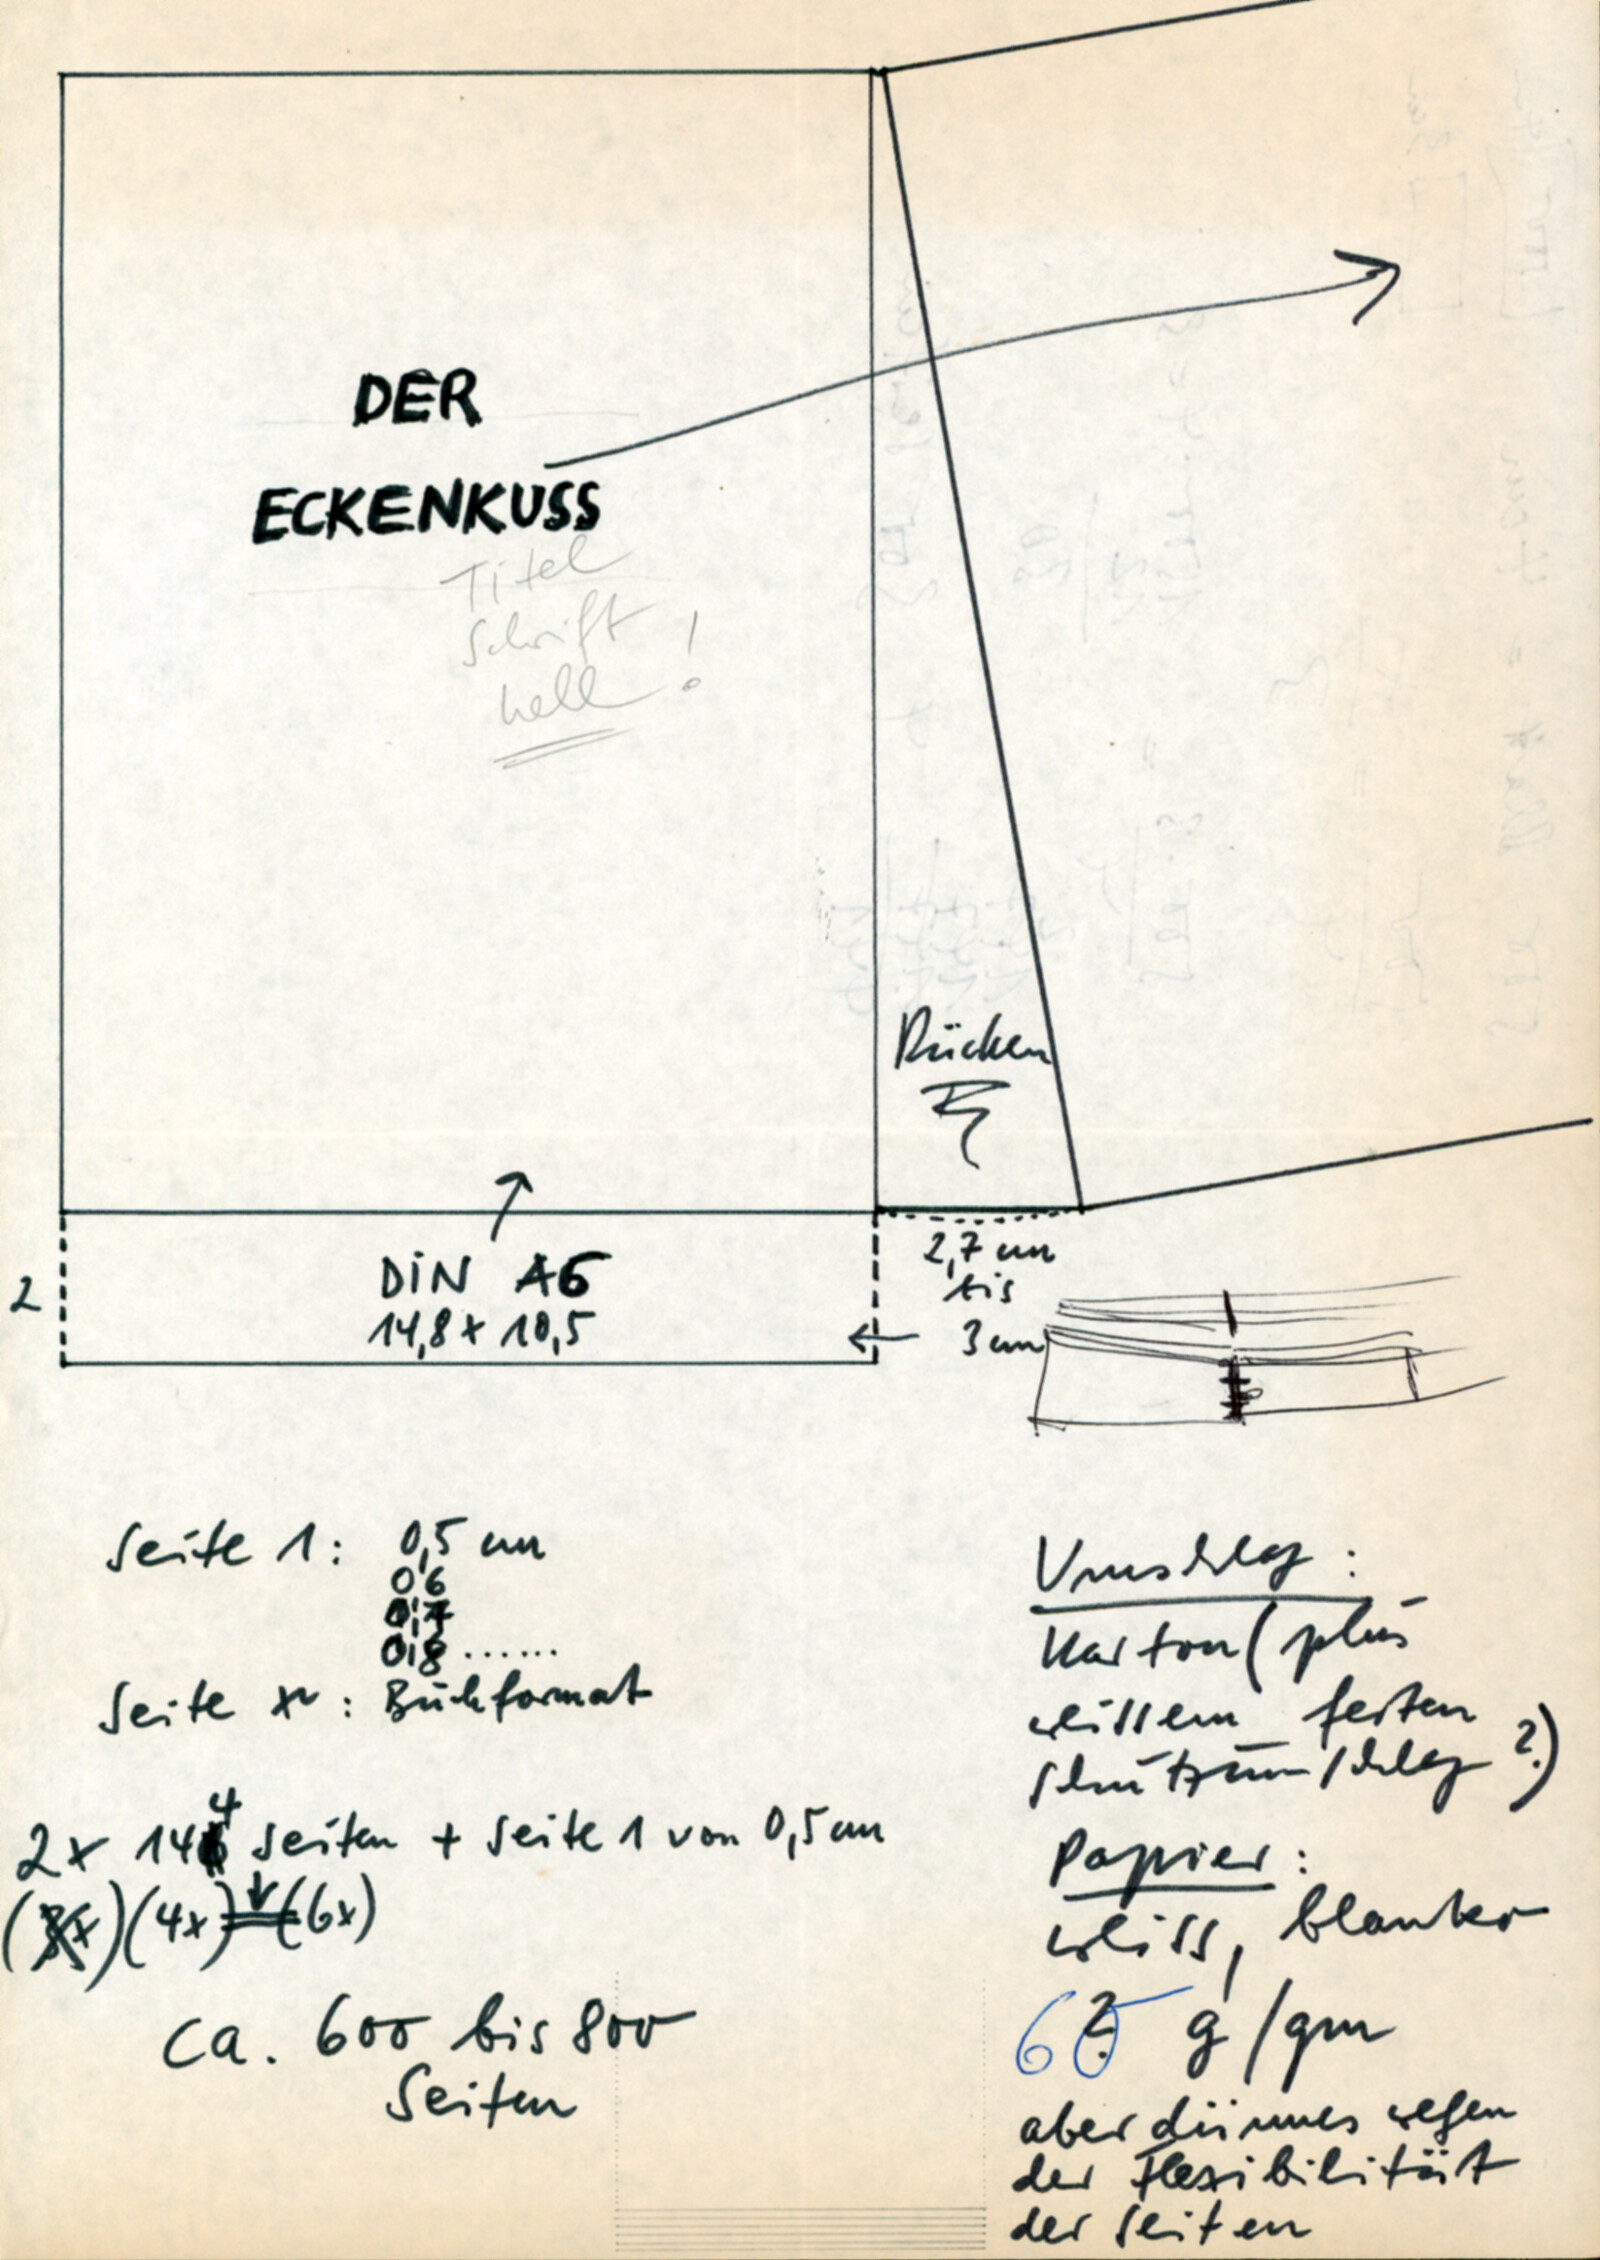 DER
ECKENKUSS
Titel
Schrift
hell!
Rücken
2
DIN A6
14,8 x 10,5
2,7 cm
bis
3 cm
Seite 1: 0,5 cm
0,6
0,7
0,8 ......
Seite x: Buchformat
2x 144 Seiten + Seite 1 von 0,5 cm
(4x) (6x)
ca. 600 bis 800
Seiten
Umschlag:
Karton (plus
weissem festen
Schutzumschlag ?)
Papier:
weiss, blanko
60 g/qm
aber dünnes wegen
der Flexibilität
der Seiten